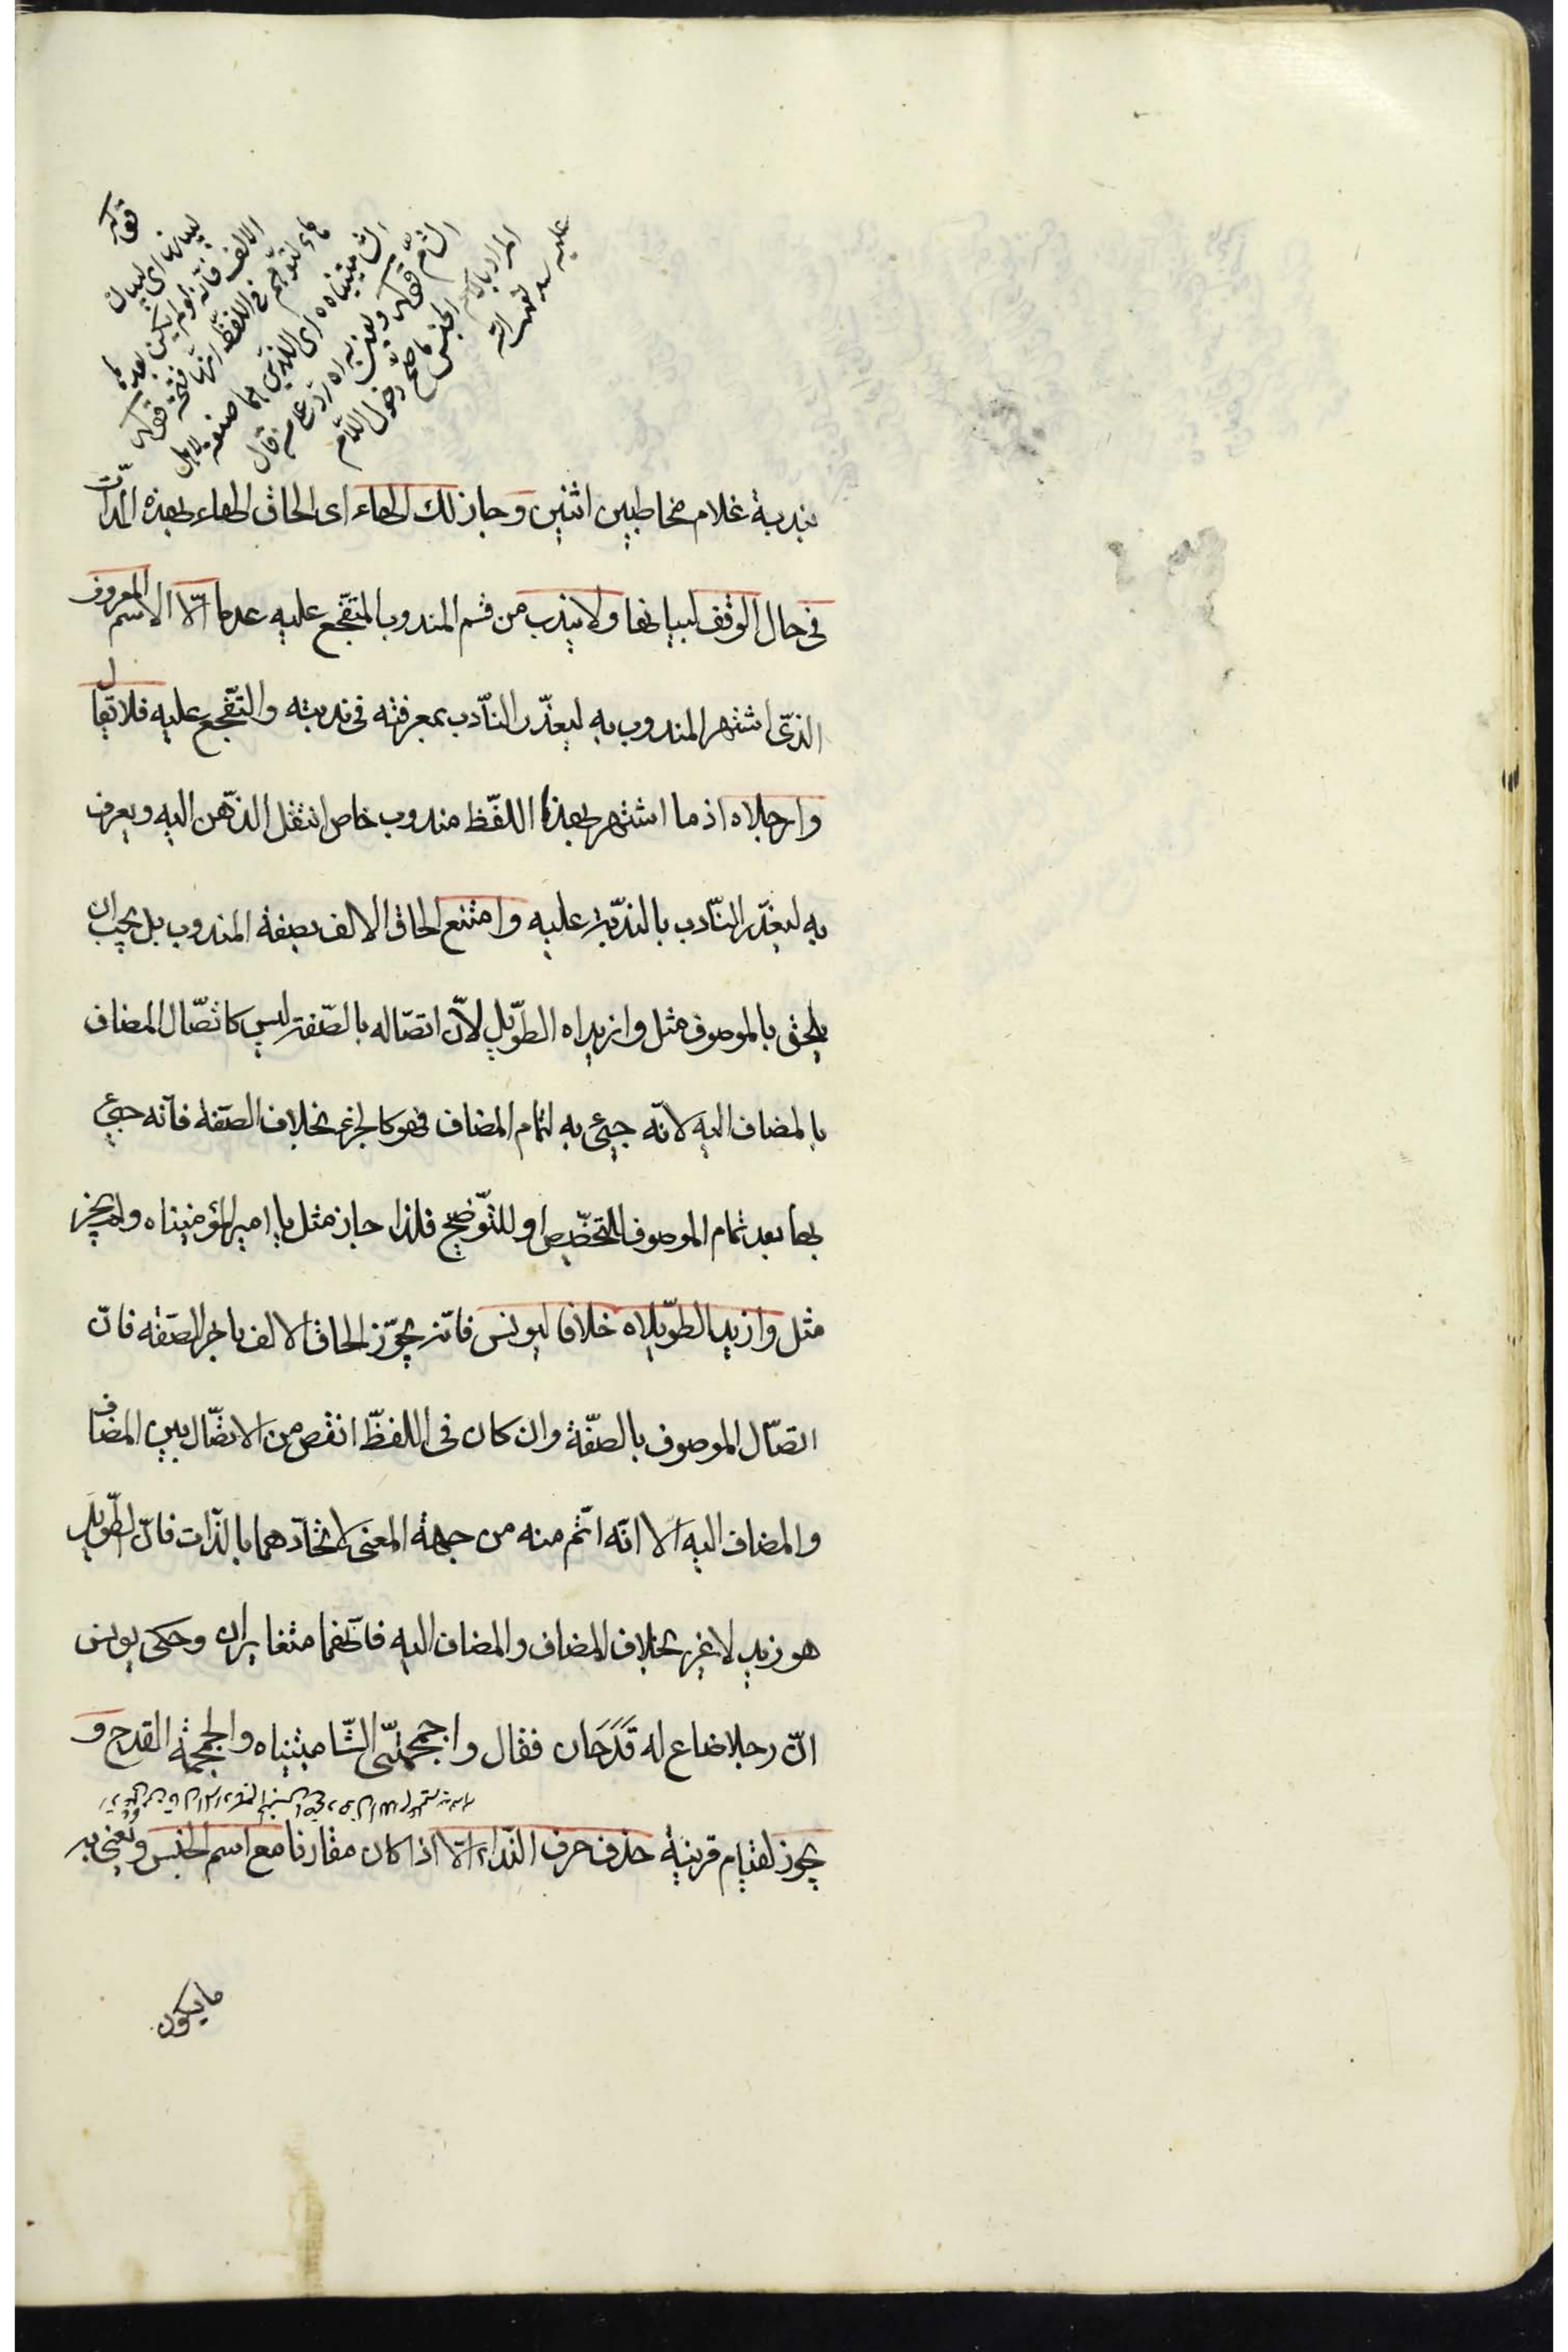 قوله
لبيانها اى لبيان
الالف فانّه لو لم يكن بعدها
هاء لتوهّم فى اللفظ انها فتحة قوله
الشاميتيناه اى اللذين هما صنعة لاهل
الشّام قوله ويعنى به اه ردّ على من قال
المراد باسم الجنس ما صحّ دخول اللّام
عليه
بندبة غلام مخاطبين اثنين وجاز لك الهاء اى الحاق الهاء بهذه المدّات
فى حال الوقف لبيانها ولا يندب من قسم المندوب المتفجّع عليه عدما الّا الاسم المعروف
الذّى اشتهر المندوب به ليعذّر النّادب بمعرفته فى ندبته والتّفجّع عليه فلا يقال
وارجلاه اذ ما اشتهر بهذا اللفّظ مندوب خاص انتقل الذّهن اليه ويعرف
به ليعذّر النّادب بالندّبة عليه وامتنع الحاق الالف بصفة المندوب بل يجب ان
يلحق بالموصوف مثل وازيداه الطّويل لانّ اتصّاله بالصّفة ليس كاتصّال المضاف
بالمضاف اليه لانّه جيئ به لتمام المضاف فهو كالجزء بخلاف الصّفة فانّه جيئ
بها بعد تمام الموصوف للتخصّيص او للتّوضيح فلذا جاز مثل يا امير المؤمنيناه ولم يجز
مثل وازيد الطّويلاه خلافا ليونس فانّه يجوّز الحاق الالف باخر الصّفة فانّ
اتصّال الموصوف بالصّفة وان كان فى اللفظّ انقص من الاتصّال بين المضاف
والمضاف اليه الّا انّه اتّم منه من جهة المعنى لاتحّادهما بالذّات فانّ الطّويل
هو زيد لا غير بخلاف المضاف والمضاف اليه فانّهما متغايران وحكى يونس
انّ رجلا ضاع له قَدَحَان فقال واجمجمتىّ الشّاميتيناه والجمجمة القدح و
يجوز لقيام قرينة حذف حرف النّداء الّا اذا كان مقارنا مع اسم الجنس ونعنى به
ما يكون